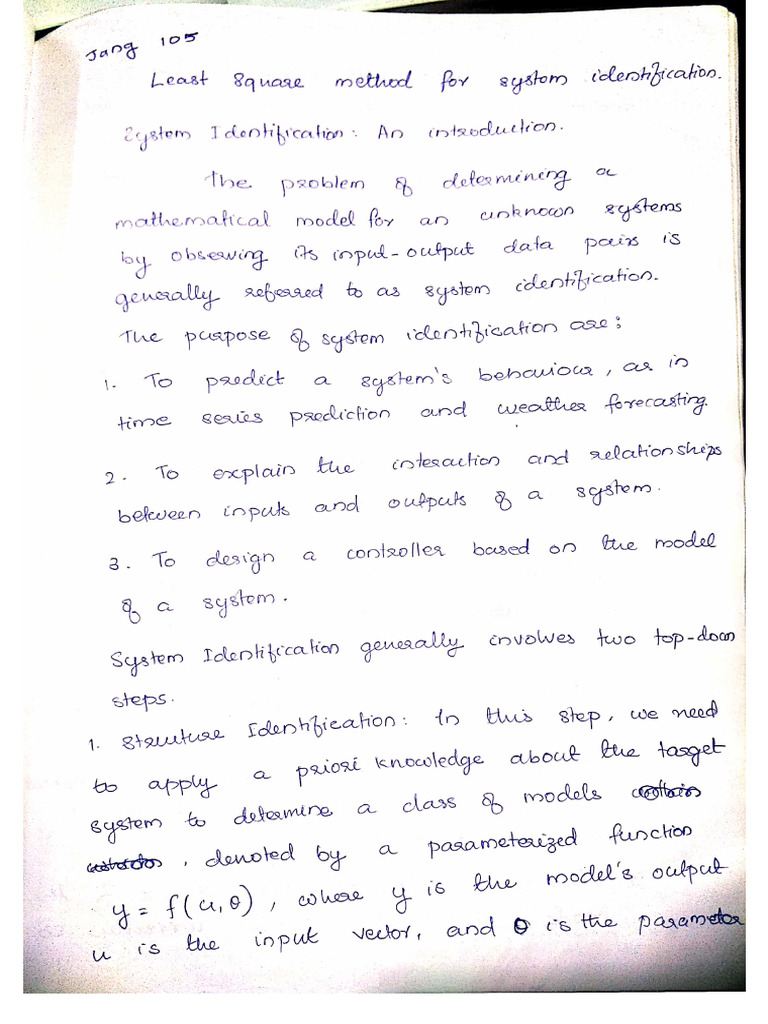 Jang 105
Least Square method for system identification.
System Identification: An introduction.
The problem of determining a
mathematical model for an unknown systems
by observing its input-output data pairs is
generally referred to as system identification.
The purpose of system identification are:
1. To predict a system's behaviour, as in
time series prediction and weather forecasting.
2. To explain the interaction and relationships
between inputs and outputs of a system.
3. To design a controller based on the model
of a system.
System Identification generally involves two top-down
steps.
1. Struture Identification: In this step, we need
to apply a priori knowledge about the target
system to determine a class of models
, denoted by a parameterized function
y = f(u, θ), where y is the model's output
u is the input vector, and θ is the parameter